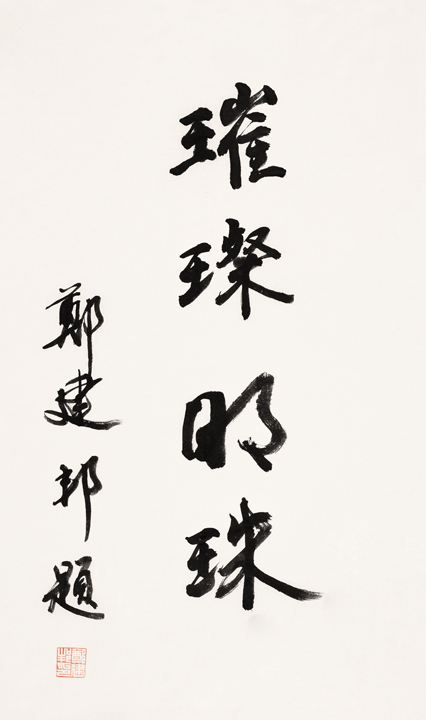 璀璨明珠
鄭建邦題